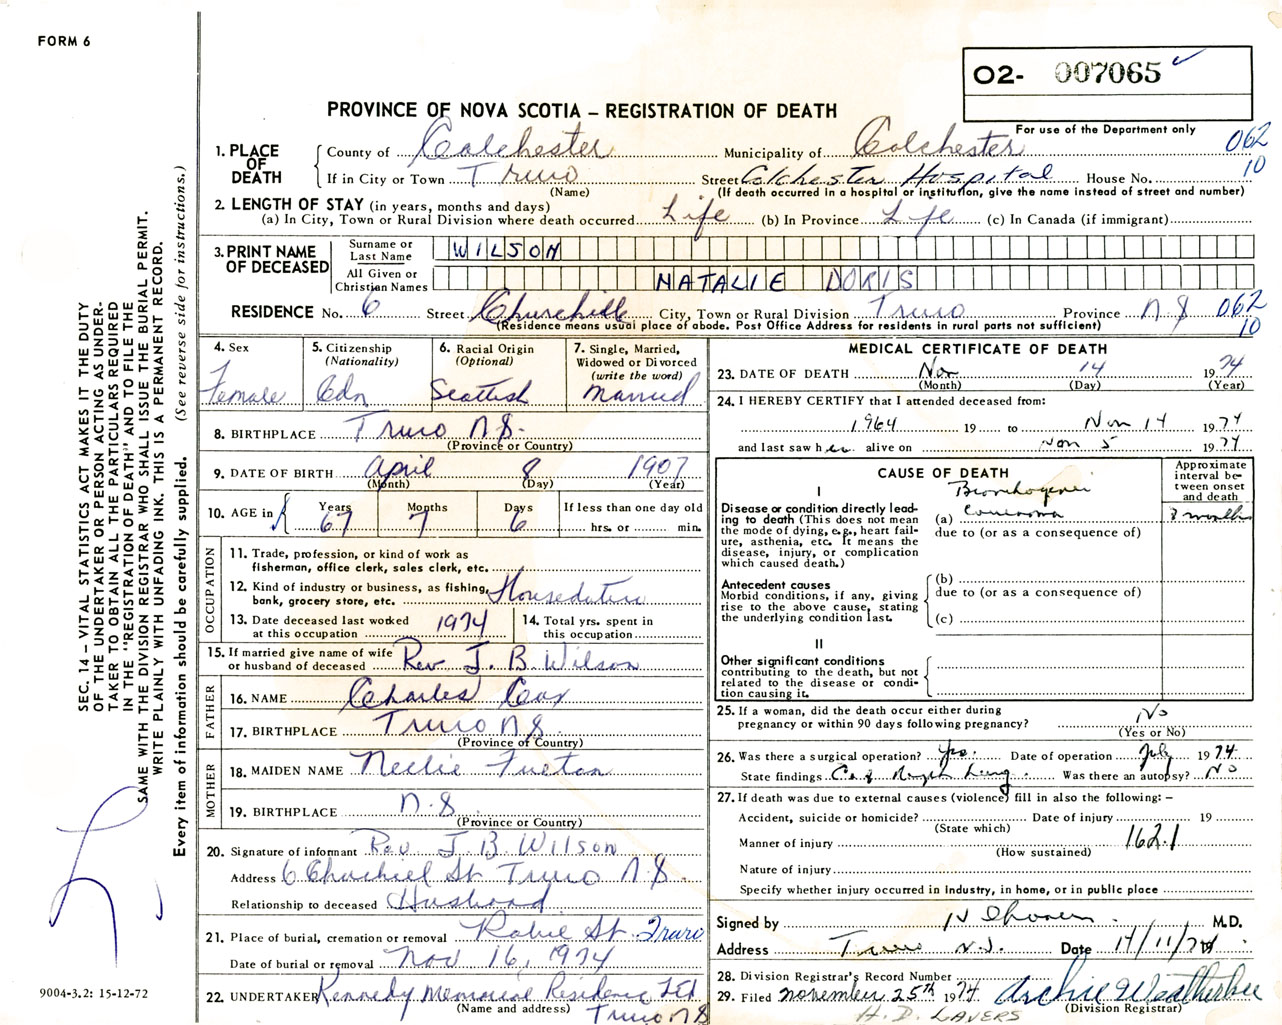 FORM 6
O2- 007065
PROVINCE OF NOVA SCOTIA – REGISTRATION OF DEATH
For use of the Department only
062
10
1. PLACE OF DEATH
County of Colchester Municipality of Colchester
If in City or Town Truro Street Colchester Hospital House No.
(Name) (If death occurred in a hospital or institution, give the name instead of street and number)
2. LENGTH OF STAY (in years, months and days)
(a) In City, Town or Rural Division where death occurred Life (b) In Province Life (c) In Canada (if immigrant)
3. PRINT NAME OF DECEASED
Surname or Last Name WILSON
All Given or Christian Names NATALIE DORIS
RESIDENCE No. 6 Street Churchill City, Town or Rural Division Truro Province N S 062
10
(Residence means usual place of abode. Post Office Address for residents in rural parts not sufficient)
4. Sex
Female
5. Citizenship
(Nationality)
Cdn
6. Racial Origin
(Optional)
Scottish
7. Single, Married, Widowed or Divorced
(write the word)
Married
8. BIRTHPLACE Truro N.S.
(Province or Country)
9. DATE OF BIRTH April 8 1907
(Month) (Day) (Year)
10. AGE in
Years 67 Months 7 Days 6
If less than one day old
hrs. or min.
OCCUPATION
11. Trade, profession, or kind of work as
fisherman, office clerk, sales clerk, etc.
12. Kind of industry or business, as fishing,
bank, grocery store, etc.
13. Date deceased last worked
at this occupation 1974
14. Total yrs. spent in
this occupation
15. If married give name of wife
or husband of deceased Rev J. B. Wilson
FATHER
16. NAME Charles Cox
17. BIRTHPLACE Truro N S.
(Province or Country)
MOTHER
18. MAIDEN NAME Nellie Fulton
19. BIRTHPLACE N.S.
(Province or Country)
20. Signature of informant Rev J. B. Wilson
Address 6 Churchill St. Truro N S.
Relationship to deceased Husband
21. Place of burial, cremation or removal Robie St. Truro
Date of burial or removal Nov 16, 1974
22. UNDERTAKER Kennedy Memorial Residence LTD
(Name and address) Truro N S
MEDICAL CERTIFICATE OF DEATH
23. DATE OF DEATH Nov 14 1974
(Month) (Day) (Year)
24. I HEREBY CERTIFY that I attended deceased from:
1964 19 to Nov 14 1974
and last saw her alive on Nov 5 1974
CAUSE OF DEATH
Approximate interval between onset and death
I
Disease or condition directly leading to death (This does not mean the mode of dying, e.g., heart failure, asthenia, etc. It means the disease, injury, or complication which caused death.)
Bronchogenic
(a) Carcinoma 8 months
due to (or as a consequence of)
Antecedent causes
Morbid conditions, if any, giving rise to the above cause, stating the underlying condition last.
(b)
due to (or as a consequence of)
(c)
II
Other significant conditions
contributing to the death, but not related to the disease or condition causing it.
25. If a woman, did the death occur either during
pregnancy or within 90 days following pregnancy? No
(Yes or No)
26. Was there a surgical operation? yes. Date of operation July 1974
State findings Ca of Lung Was there an autopsy? No
27. If death was due to external causes (violence) fill in also the following: –
Accident, suicide or homicide? Date of injury 19
(State which)
Manner of injury 162.1
(How sustained)
Nature of injury
Specify whether injury occurred in industry, in home, or in public place
Signed by M.D.
Address Truro N.S. Date 14/11/74
28. Division Registrar's Record Number
29. Filed November 25th 1974 Archie Weatherbee
(Division Registrar)
H. D. LAVERS
SEC. 14 – VITAL STATISTICS ACT MAKES IT THE DUTY
OF THE UNDERTAKER OR PERSON ACTING AS UNDER-
TAKER TO OBTAIN ALL THE PARTICULARS REQUIRED
IN THE "REGISTRATION OF DEATH" AND TO FILE THE
SAME WITH THE DIVISION REGISTRAR WHO SHALL ISSUE THE BURIAL PERMIT.
WRITE PLAINLY WITH UNFADING INK. THIS IS A PERMANENT RECORD.
Every item of information should be carefully supplied. (See reverse side for instructions.)
9004-3.2: 15-12-72